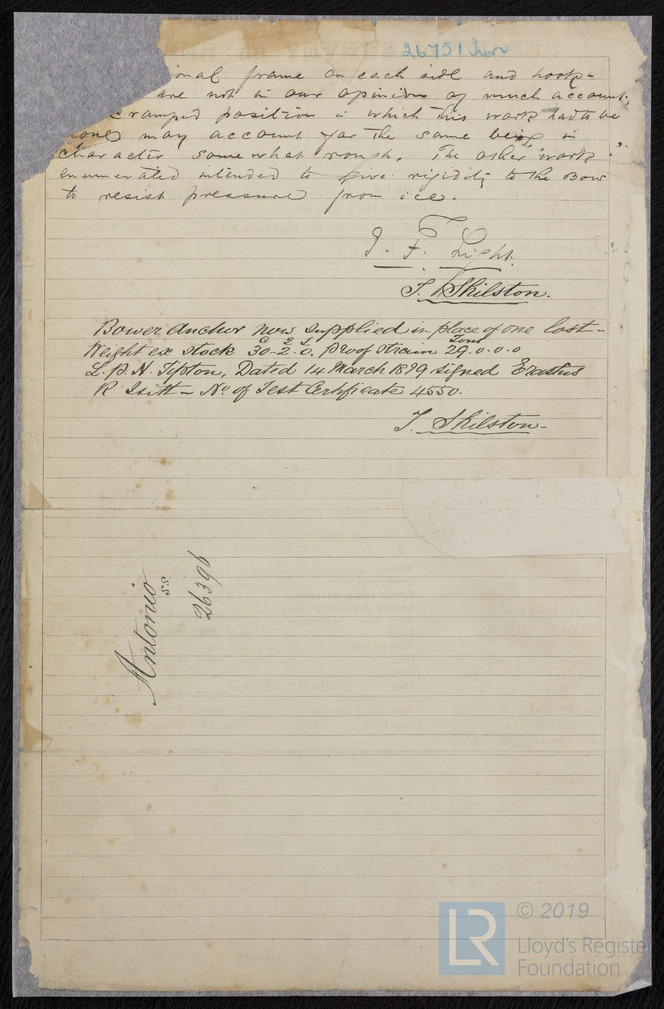 26751 Iron
ional frame on each side and hook-
are not in our opinion of much account;
cramped position in which this work had to be
done may account for the same being in
character somewhat rough. The other work
enumerated intended to give rigidity to the Bow
to resist pressure from ice.
J. F. Light.
T. Skilston.
Bower Anchor now supplied in place of one lost-
C Q L Tons
Weight ex Stock 30-2-0, proof strain 29.0.0.0
L. P. H. Tipton, Dated 14 March 1899 signed Erastus
R Isitt - No. of Test Certificate 4550.
T. Skilston-
Antonio
S.S.
26396
LR
© 2019
Lloyd's Register
Foundation